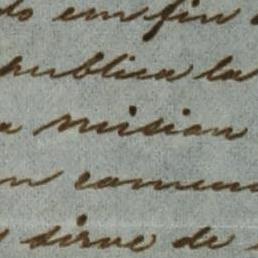 do em fin
publica la
a mision
n comun
sirve de